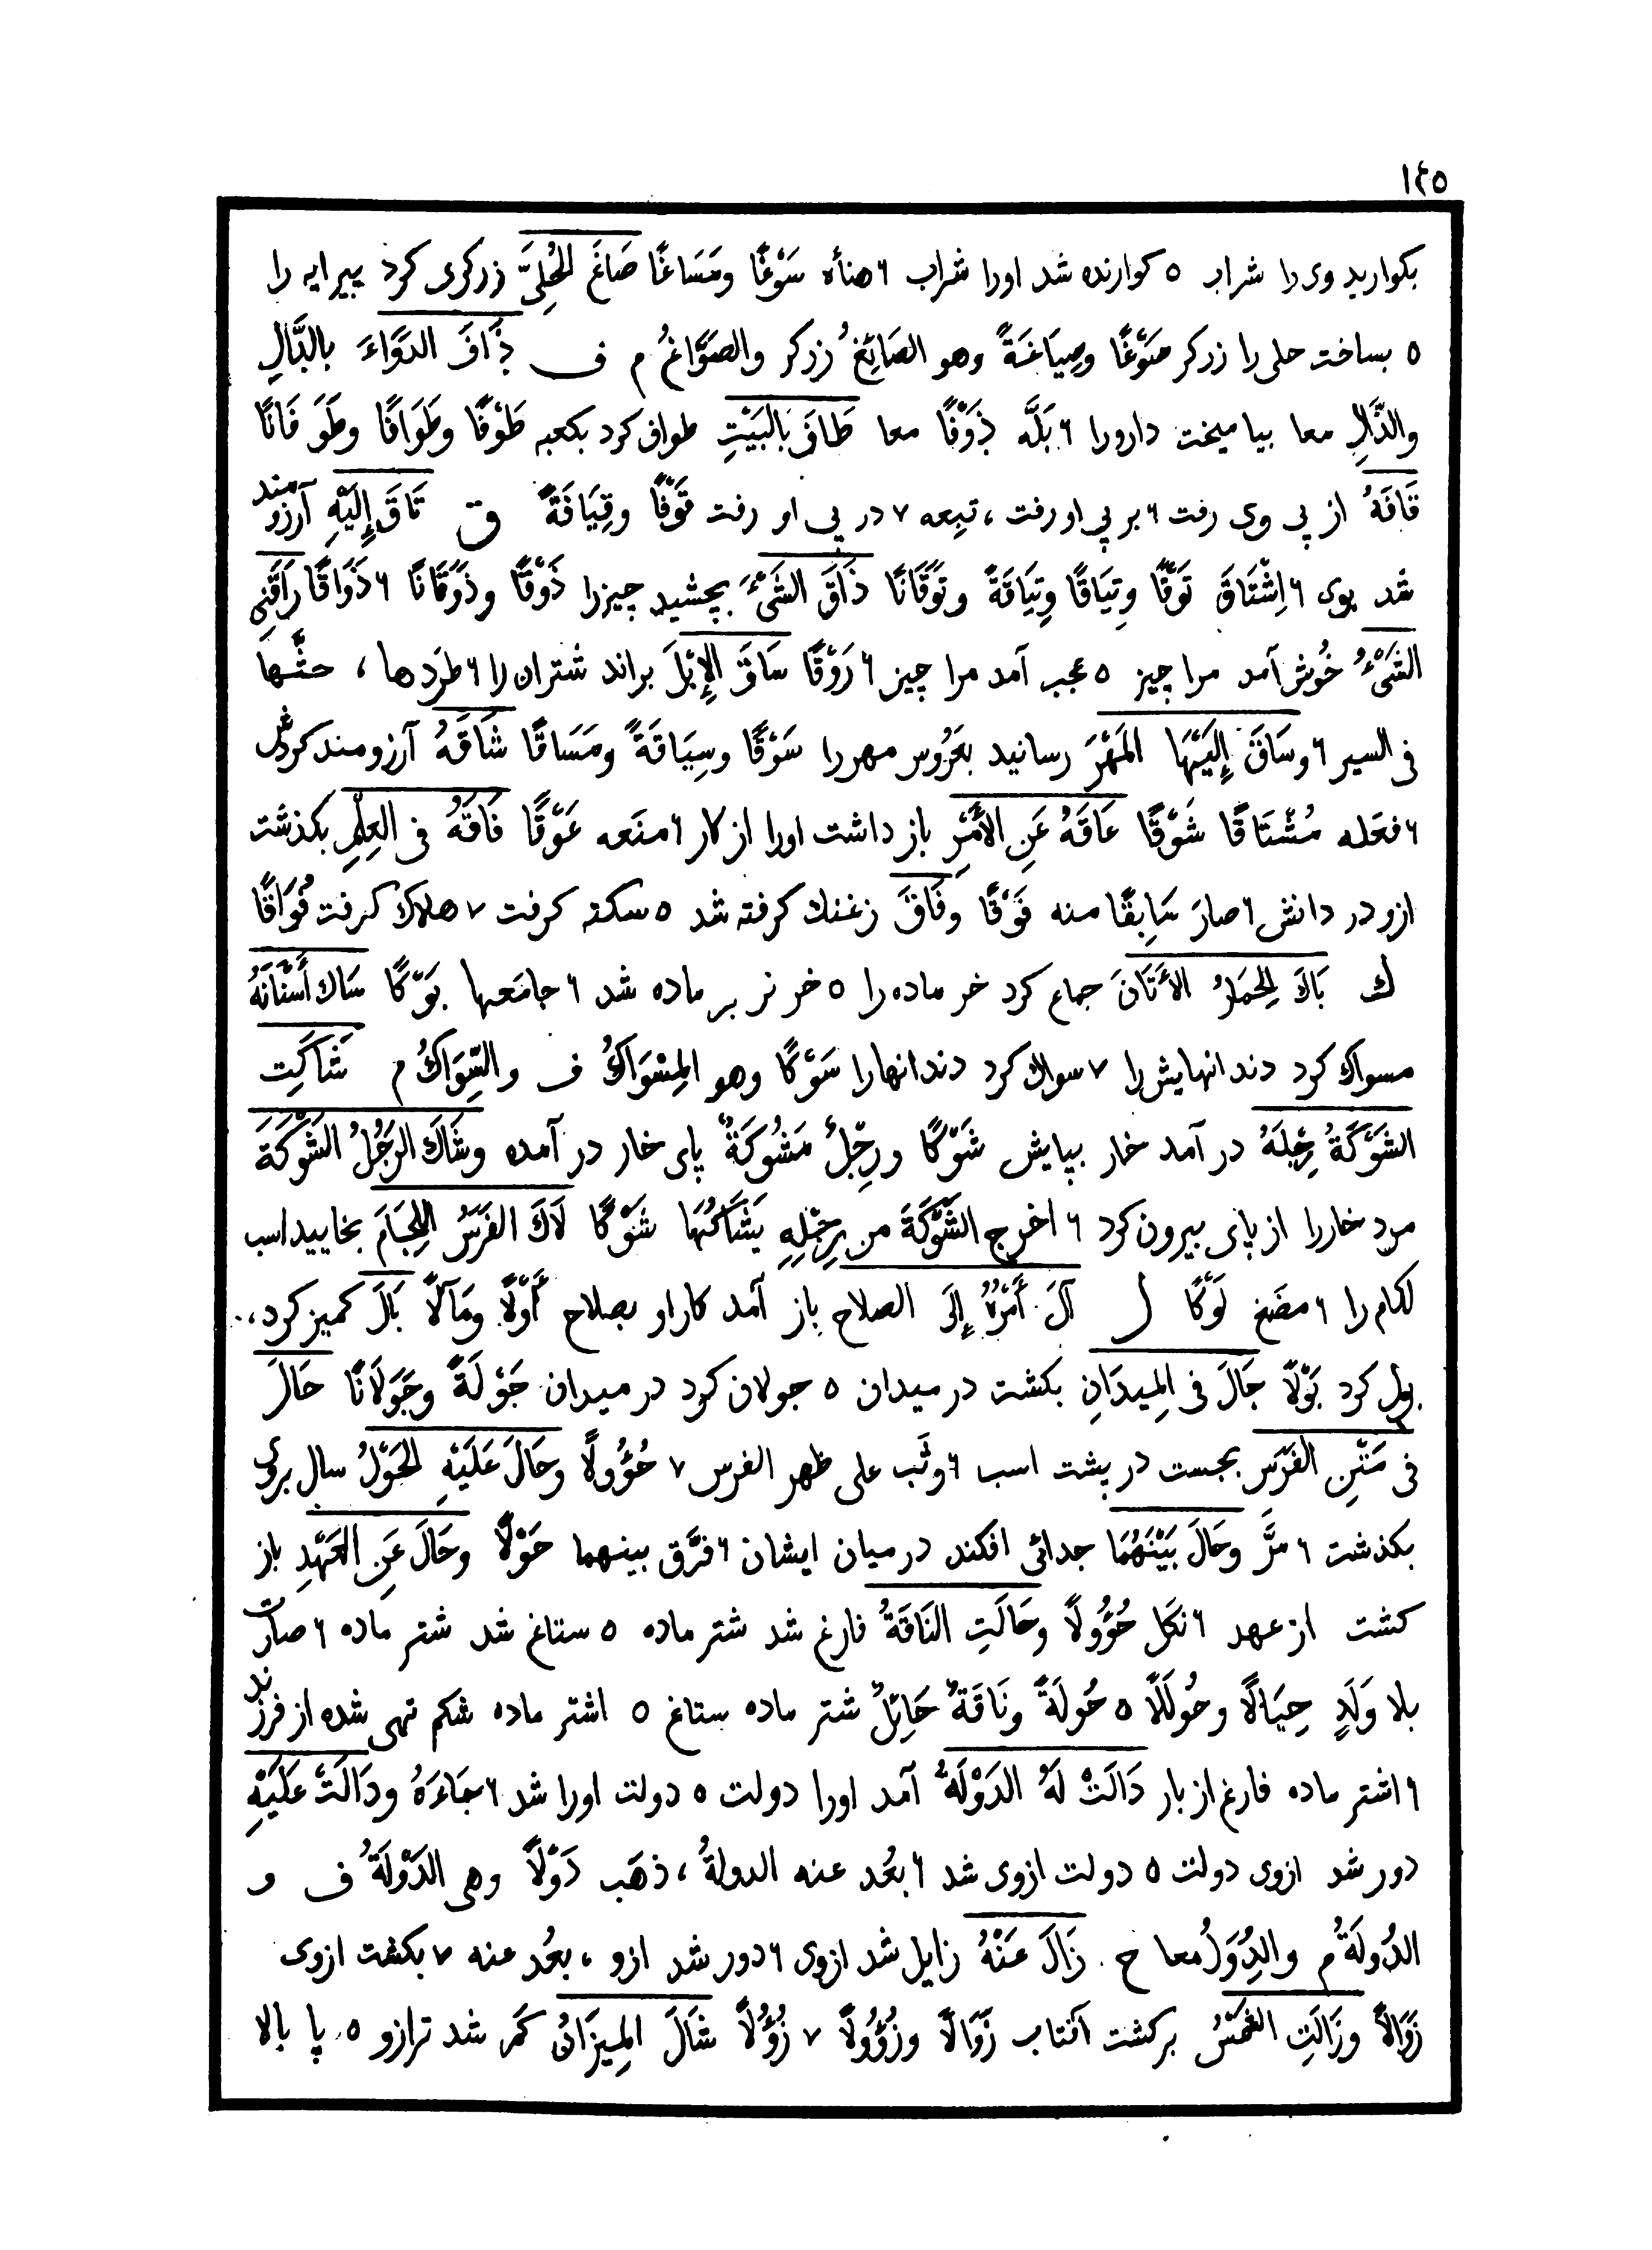 ١٤٥
بكواريد وى را شراب ٥ كوارنده شد اورا شراب ٦ هنأه سَوْغًا ومَسَاغًا صَاغَ الحُلِىَّ زركرى كرد پيرايه را
٥ بساخت حلى را زركر صَوْغًا وصِيَاغَةً وهو الصَائِغُ زركر والصَوَّاغُ م ف ذَافَ الدَوَاءَ بالدَّالِ
والذَّالِ معا بياميخت دارورا ٦ بَلَّه ذَوْفًا معا طَافَ بِالبَيْتِ طواف كرد بكعبه طَوْفًا وطَوَافًا وطَوَفَانًا
قَافَهُ از پى وى رفت ٦ بر پى او رفت ، تبِعه ٧ در پى او رفت قَوْفًا وقِيَافَةً ق تَاقَ إِلَيْهِ آرزومند
شد بوى ٦ اِشْتَاقَ تَوْقًا وتِيَاقًا وتِيَاقَةً وتَوَقَانًا ذَاقَ الشَىْءَ بچشيد چيزرا ذَوْقًا وذَوَقَانًا ٦ ذَوَاقًا رَاقَنِى
الشَىْءُ خُوش آمد مرا چيز ٥ عجب آمد مرا چيز ٦ رَوْقًا سَاقَ الإِبْلَ براند شتران را ٦ طرَدها ، حثَّها
فى السير ٦ وسَاقَ إِلَيْهَا المَهْرَ رسانيد بعَرُوس مهررا سَوْقًا وسِيَاقَةً ومَسَاقًا شَاقَهُ آرزومند كردش
٦ فعَله مُشْتَاقًا شَوْقًا عَاقَهُ عَنِ الأَمْرِ باز داشت اورا از كار ٦ منَعه عَوْقًا فَاقَهُ فى العِلْمِ بكذشت
ازو در دانش ٦ صارَ سَابِقًا منه فَوْقًا وفَاقَ زغنك كرفته شد ٥ سكته كرفت ٧ هلاك كرفت فُوَاقًا
ك بَاكَ الحِمَارُ الأَتَانَ جماع كرد خر ماده را ٥ خر نر بر ماده شد ٦ جامَعها بَوْكًا سَاكَ أَسْنَانَهُ
مسواك كرد دندانهايش را ٧ سواك كرد دندانهارا سَوْكًا وهو المِسْوَاكُ ف والسِّوَاكُ م شَاكَتِ
الشَوْكَةُ رِجْلَهُ در آمد خار بپايش شَوْكًا ورِجْلٌ مَشُوكَةٌ پاى خار در آمده وشَاكَ الرَجُلُ الشَوْكَةَ
مرد خاررا از پاى بيرون كرد ٦ اخرج الشَّوْكَةَ من رِجْلِهِ يَشَاكُهَا شَوْكًا لَاكَ الفَرَسُ اللِجَامَ بخاييد اسب
لكام را ٦ مضَغ لَوْكًا ل آلَ أَمْرُهُ إِلَى الصلاح باز آمد كار او بصلاح أَوْلًا ومَآلًا بَالَ كميز كرد ،
بول كرد بَوْلًا جَالَ فى المِيدَانِ بكشت در ميدان ٥ جولان كرد در ميدان جَوْلَةً وجَوَلَانًا حَالَ
فى مَتْنِ الفَرَسِ بجست در پشت اسب ٦ وثَب على ظهر الفرس ٧ حُؤُولًا وحَالَ عَلَيْهِ الحَوْلُ سال بروى
بكذشت ٦ مرَّ وحَالَ بَيْنَهُمَا جدائى افكند در ميان ايشان ٦ فرَّق بينهما حَوْلًا وحَالَ عَنِ العَهْدِ باز
كشت از عهد ٦ نكَل حُؤُولًا وحَالَتِ النَاقَةُ فارغ شد شتر ماده ٥ ستاغ شد شتر ماده ٦ صارت
بلا وَلَدٍ حِيَالًا وحُولَلًا ٥ حُولَةً ونَاقَةٌ حَائِلٌ شتر ماده ستاغ ٥ اشتر ماده شكم تهى شده از فرزند
٦ اشتر ماده فارغ از بار دَالَتْ لَهُ الدَوْلَةُ آمد اورا دولت ٥ دولت اورا شد ٦ جَاءَهُ ودَالَتْ عَلَيْهِ
دور شد ازوى دولت ٥ دولت ازوى شد ٦ بعُد عنه الدولةُ ، ذهَب دَوْلًا وهى الدَوْلَةُ ف و
الدُولَةُ م والدِوَلُ معا ح زَالَ عَنْهُ زايل شد ازوى ٦ دور شد ازو ، بعُد عنه ٧ بكشت ازوى
زَوَالًا وزَالَتِ الشَمْسُ بركشت آفتاب زَوَالًا وزُؤُولًا ٧ زُؤُلًا شَالَ المِيزَانُ كمر شد ترازو ٥ پا بالا